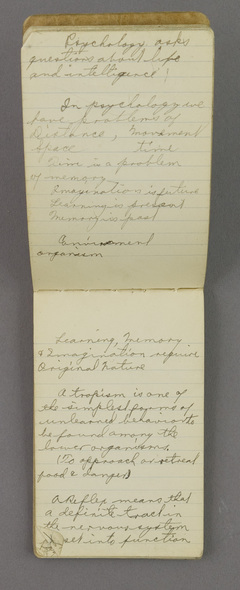 Psychology asks
questions about life
and intelligence!
In psychology we
have problems of
distance, movement
space time
Time is a problem
of memory
Imagination is future
Learning is present
Memory is past
Environment
organism
Learning, Memory
& Imagination require
Original Nature
A tropism is one of
the simplest forms of
unlearned behavior to
be found among the
lower organisms.
(To approach or retreat
food & danger)
A Reflex means that
a definite tract in
the nervous system
set into function